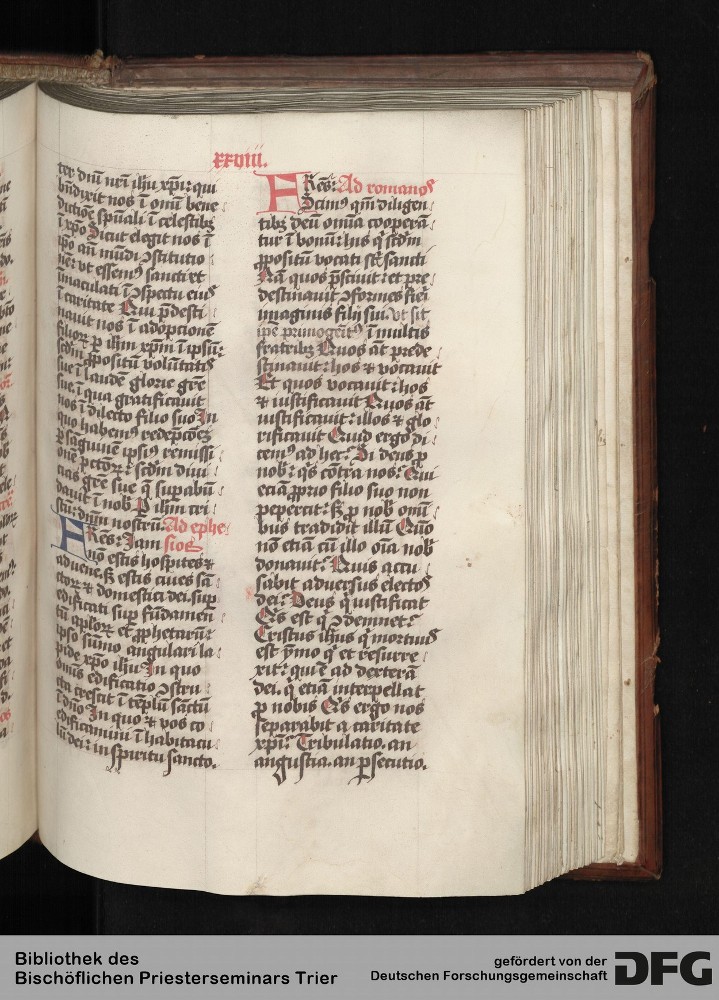 xxviii.
ter dn̄i nr̄i ihu xp̄i: qui
bn̄dixit nos ī omī bene
dictiōe sp̄uali ī celestib;
ī xp̄o Sicut elegit nos ī
ip̄o an̄ mūdi ꝯstitutio
nē: vt essemꝰ sancti et
īmaculati ī ꝯspectu eiꝰ
ī caritate Qui p̄desti
nauit nos ī adoptionē
filioꝝ ꝑ ihm̄ xpm̄ ī ipsū:
scd̄m ꝓpositū volūtatis
sue ī laudē glorie grē
sue. ī qua gratificauit
nos ī dilecto filio suo In
quo habemꝰ redēpcōez
ꝑ sāguinē ipsiꝰ remissi
onē pctōꝝ: scd̄m diui
cias grē sue q̄ suꝑabū
dauit ī nob̄ P ihm̄ cri
stū: dn̄m nostrū. Ad ephe
FRēs: Iam sios
nō estis hospites ⁊
aduene. sꝫ estis ciues sā
ctoꝝ ⁊ domestici dei. suꝑ
edificati suꝑ fūdamen
tū apl̄oꝝ et ꝓphetarū:
ipso sūmo angulari la
pide xp̄o ihu In quo
om̄is edificatio ꝯstru
cta crescit ī tēplū sāctū
ī dn̄o In quo ⁊ vos co
edificamini ī habitacu
lū dei: in spiritu sancto.
FRēs: Ad romanos
Scimꝰ qm̄ diligen
tibꝫ deū om̄ia cooperā
tur ī bonū: his q̄ scd̄m
ꝓpositū vocati sūt sancti
Nā quos p̄sciuit: et pre
destinauit ꝯformes fiēi
imaginis filij sui. vt sit
ip̄e primogeītꝰ ī multis
fratribꝫ Quos āt prede
stinauit: hos ⁊ vocauit
Et quos vocauit: hos
⁊ iustificauit Quos āt
iustificauit: illos ⁊ glo
rificauit Quid ergo di
cemꝰ ad hec: Si deus ꝓ
nob̄: q̄s cōtra nos: Qui
eciā ꝓprio filio suo non
pepercit: sꝫ ꝓ nob̄ omī
bus tradidit illū Quō
non etiā cū illo om̄ia nob̄
donauit: Quis accu
sabit aduersus electos
dei: Deus q̄ iustificat
Q̄s est q̄ ꝯdemnet:
Cristus ihūs q̄ mortuus
est ymo q̄ et resurre
xit: qui ē ad dexterā
dei. q̄ etiā interpellat
ꝓ nobis Q̄s ergo nos
separabit a caritate
xp̄i: Tribulatio. an
angustia. an ꝑsecutio.
Bibliothek des
Bischöflichen Priesterseminars Trier
gefördert von der
Deutschen Forschungsgemeinschaft
DFG